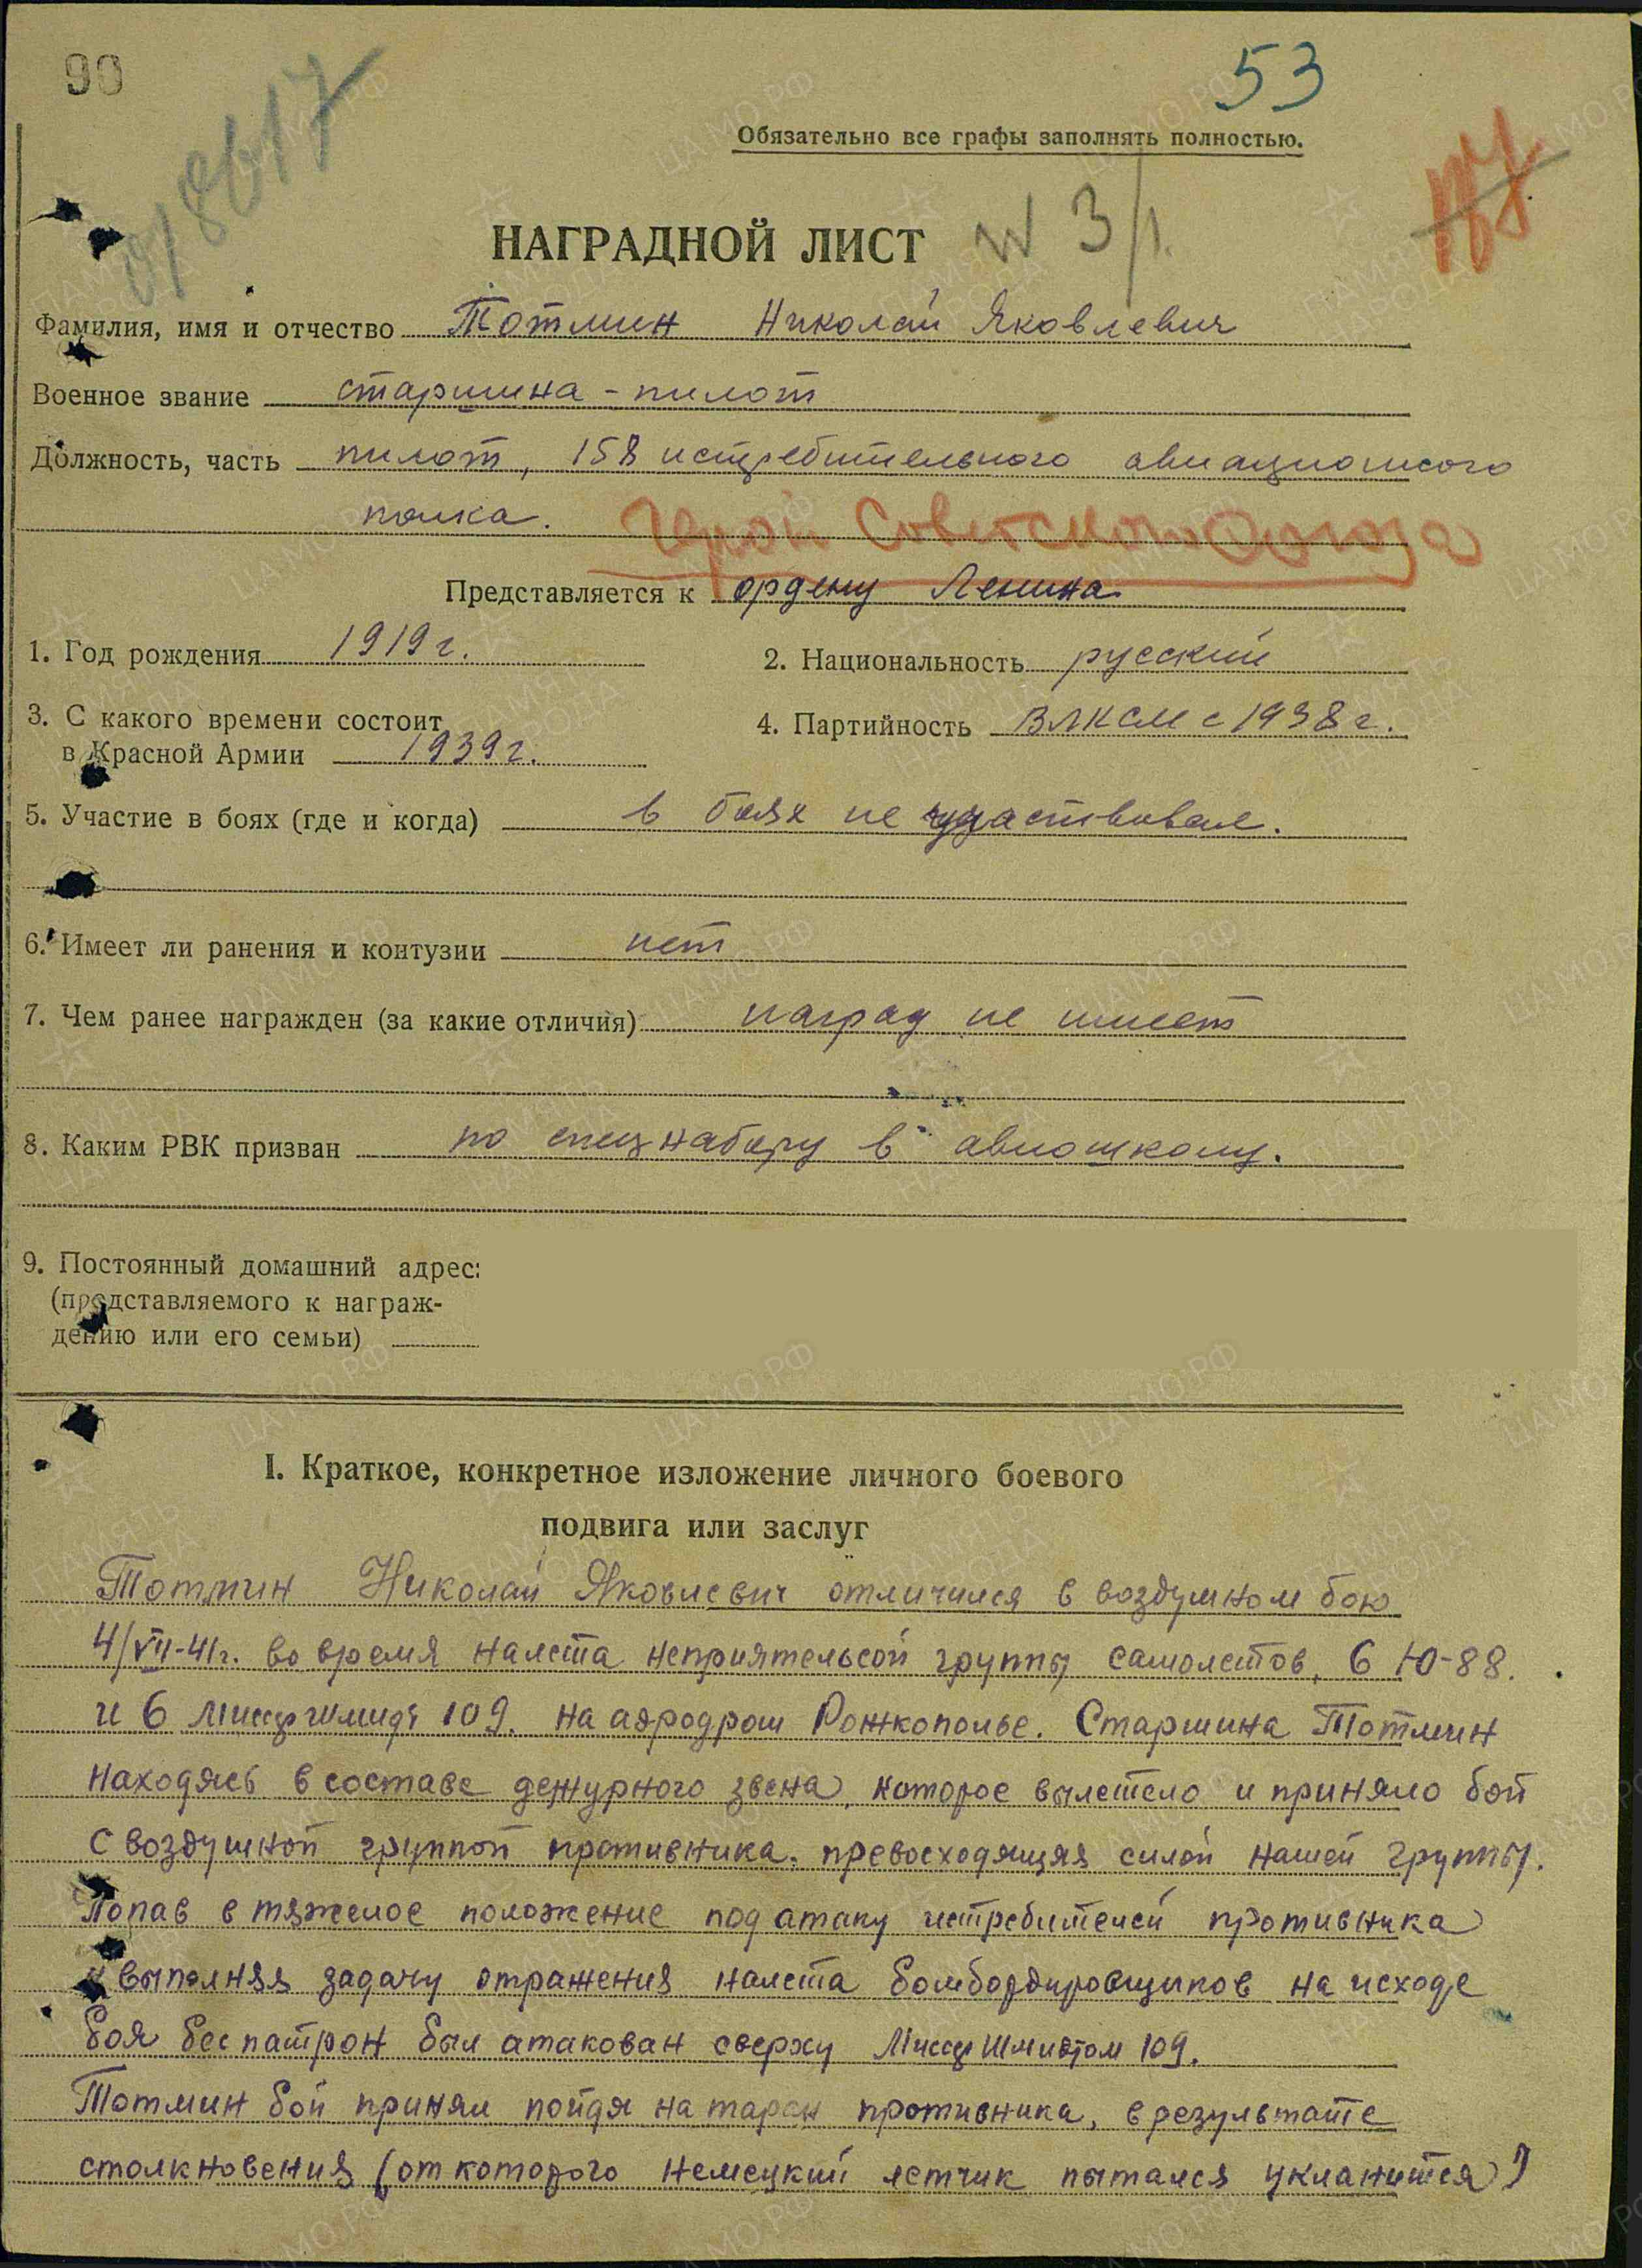 90
53
018617
Обязательно все графы заполнять полностью.
НАГРАДНОЙ ЛИСТ N 3/1.
Фамилия, имя и отчество Тотмин Николай Яковлевич
Военное звание старшина - пилот
Должность, часть пилот, 158 истребительного авиационного
полка. Герой Советского Союза
Представляется к ордену Ленина.
1. Год рождения 1919 г.
2. Национальность русский
3. С какого времени состоит
в Красной Армии 1939 г.
4. Партийность ВЛКСМ с 1938 г.
5. Участие в боях (где и когда) в боях не участвовал.
6. Имеет ли ранения и контузии нет
7. Чем ранее награжден (за какие отличия) наград не имеет
8. Каким РВК призван по спецнабору в авиошколу.
9. Постоянный домашний адрес:
(представляемого к награж-
дению или его семьи)
I. Краткое, конкретное изложение личного боевого
подвига или заслуг
Тотмин Николай Яковлевич отличился в воздушном бою
4/VII-41г. во время налета неприятельсой группы самолетов, 6 Ю-88.
и 6 109. на аэродром Рожкополье. Старшина Тотмин
находясь в составе дежурного звена, которое вылетело и приняло бой
с воздушной группой противника. превосходящая силой нашей группы.
Попав в тяжелое положение под атаку истребителей противника
и выполняя задачу отражения налета бомбордировщиков на исходе
боя бес патрон был атакован сверху 109.
Тотмин бой принял пойдя на таран противника, в результате
столкновения (от которого немецкий летчик пытался укланится)